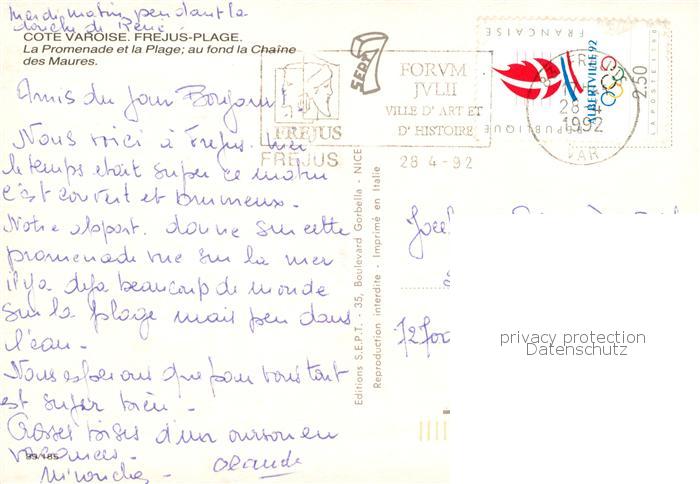 Mardi matin pendant la
douche de René
COTE VAROISE. FREJUS-PLAGE.
La Promenade et la Plage; au fond la Chaîne
des Maures.
Amis du jour Bonjour!
Nous voici à Fréjus. hier
le temps etait super ce matin
c'est couvert et brumeux.
Notre appart. donne sur cette
promenade vue sur la mer
il y a deja beaucoup de monde
sur la plage mais peu dans
l'eau.
Nous esperons que pour vous tout
est super bien.
Grosses bises d'un ourson en
vacances.
99/185
SEPT
Editions S.E.P.T. - 35, Boulevard Gorbella - NICE
Reproduction interdite - Imprimé en Italie
FREJUS
FREJUS
FORVM
JVLII
VILLE D'ART ET
D'HISTOIRE
28 4-92
RÉPUBLIQUE
FRANÇAISE
ALBERTVILLE 92
2,50
LA POSTE 1990
28-4
1992
VAR
privacy protection
Datenschutz